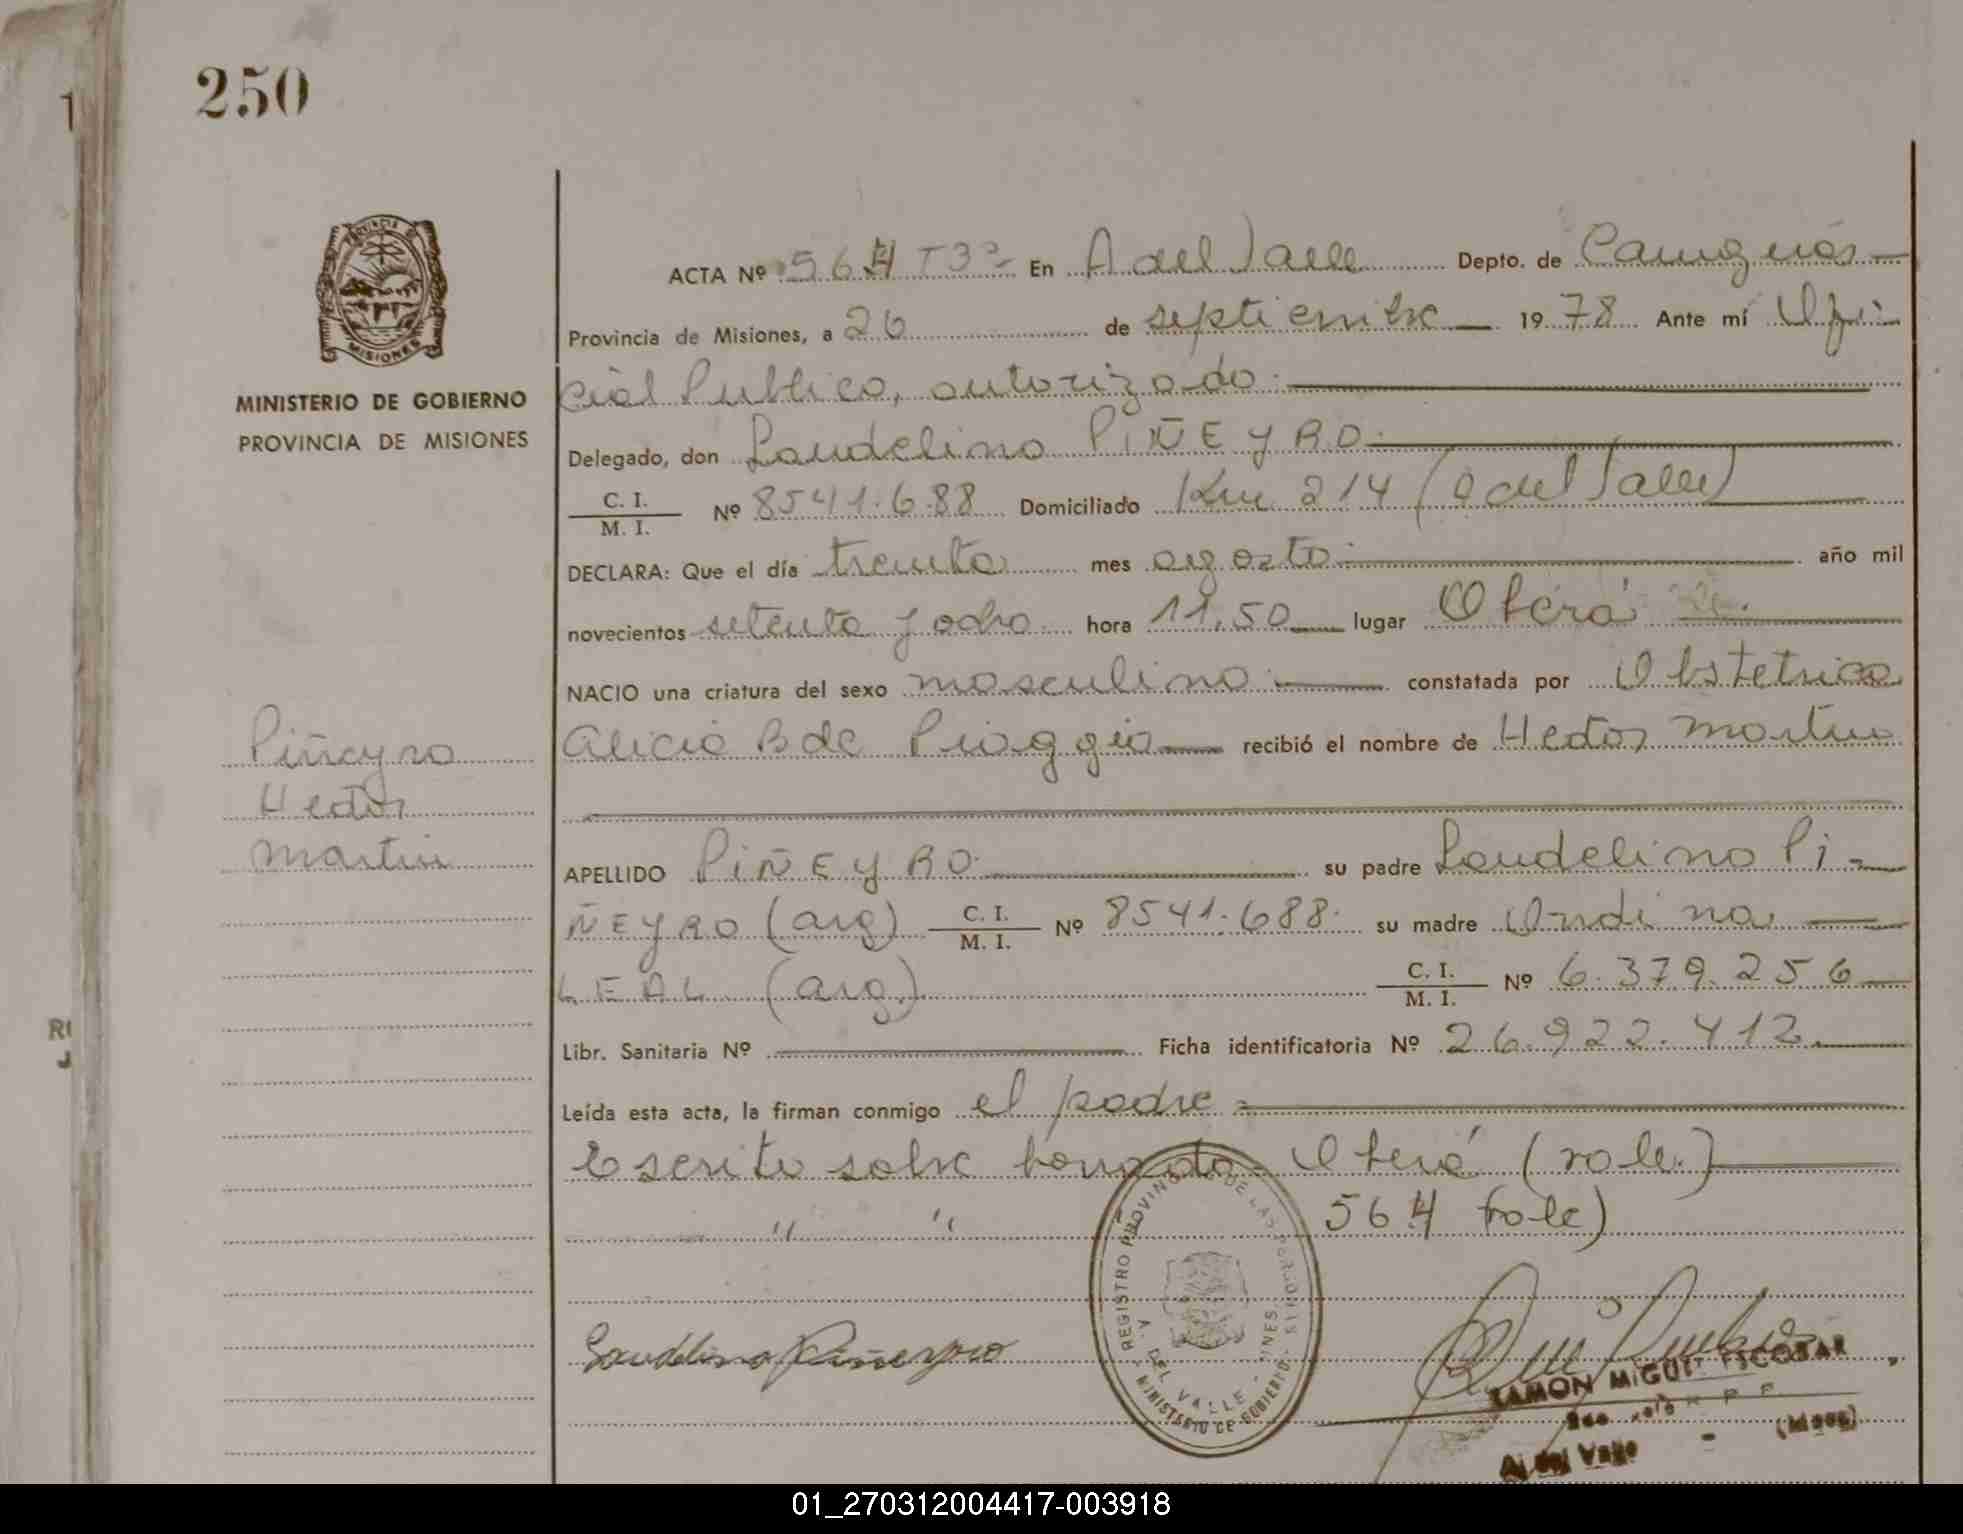 250
1
PROVINCIA DE
MISIONES
MINISTERIO DE GOBIERNO
PROVINCIA DE MISIONES
ACTA Nº 564 T3º En A del Valle Depto. de Cainguás
Provincia de Misiones, a 26 de septiembre 1978 Ante mí Ofi-
cial Publico, autorizado.
Delegado, don Laudelino PIÑEYRO.
C. I.
M. I.
Nº 8541.688 Domiciliado Km 214 (A del Valle)
DECLARA: Que el día treinta mes agosto año mil
novecientos setenta y ocho hora 11,50 lugar Oberá
NACIO una criatura del sexo masculino constatada por Obstetrica
Alicia B de Piaggio recibió el nombre de Hector Martin
Piñeyro
Hector
Martin
APELLIDO PIÑEYRO su padre Laudelino PI-
ÑEYRO (arg) C. I. M. I. Nº 8541.688. su madre Ondina
LEAL (arg.) C. I. M. I. Nº 6.379.256
Libr. Sanitaria Nº Ficha identificatoria Nº 26.922.412.
Leída esta acta, la firman conmigo el padre
Escrito sobre borrado- Oberá (vale.)
" " 564 (vale)
Laudelino Piñeyro
REGISTRO PROVINCIAL DE LAS PERSONAS
A. DEL VALLE - MNES.
MINISTERIO DE GOBIERNO
RAMON MIGUEL ESCOBAR
A. del Valle - (Mnes)
RC
J
01_270312004417-003918